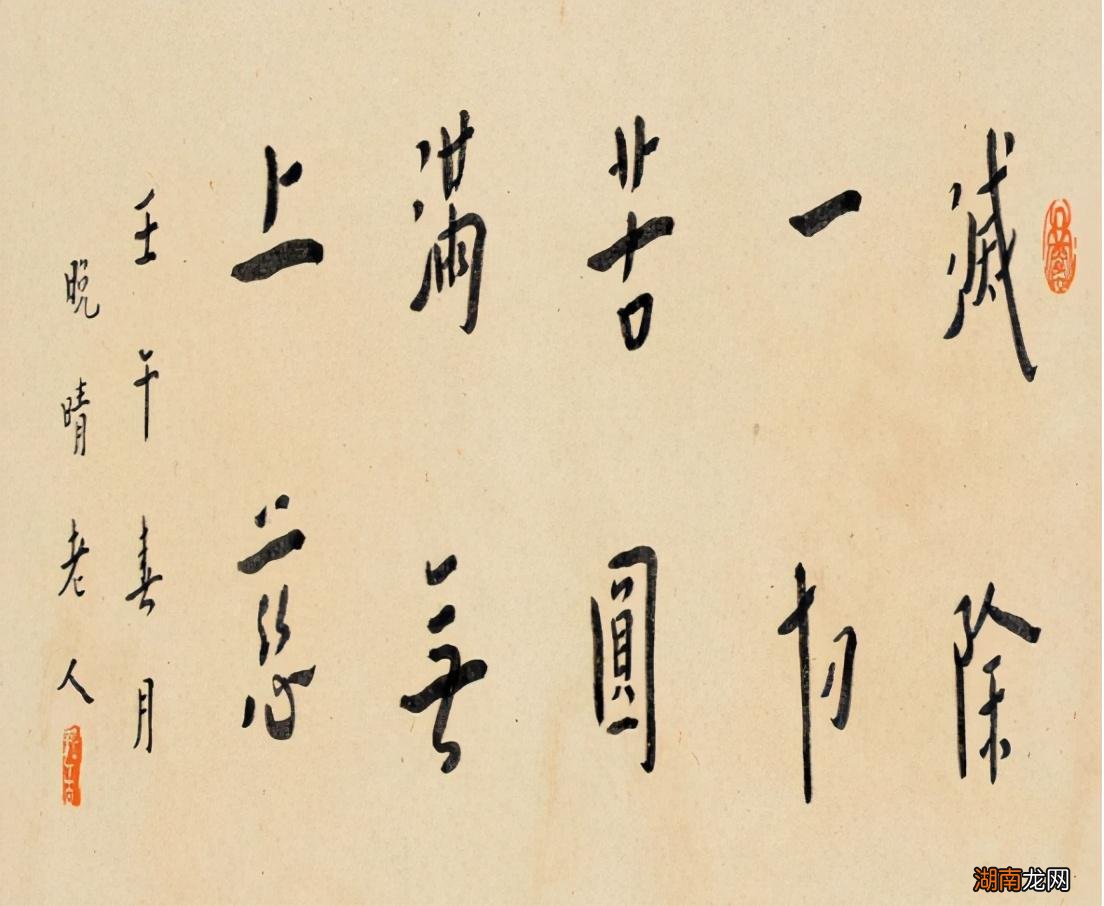 滅除
一切
苦圓
滿無
上慈
壬午春月
晚晴老人
湖南龙网